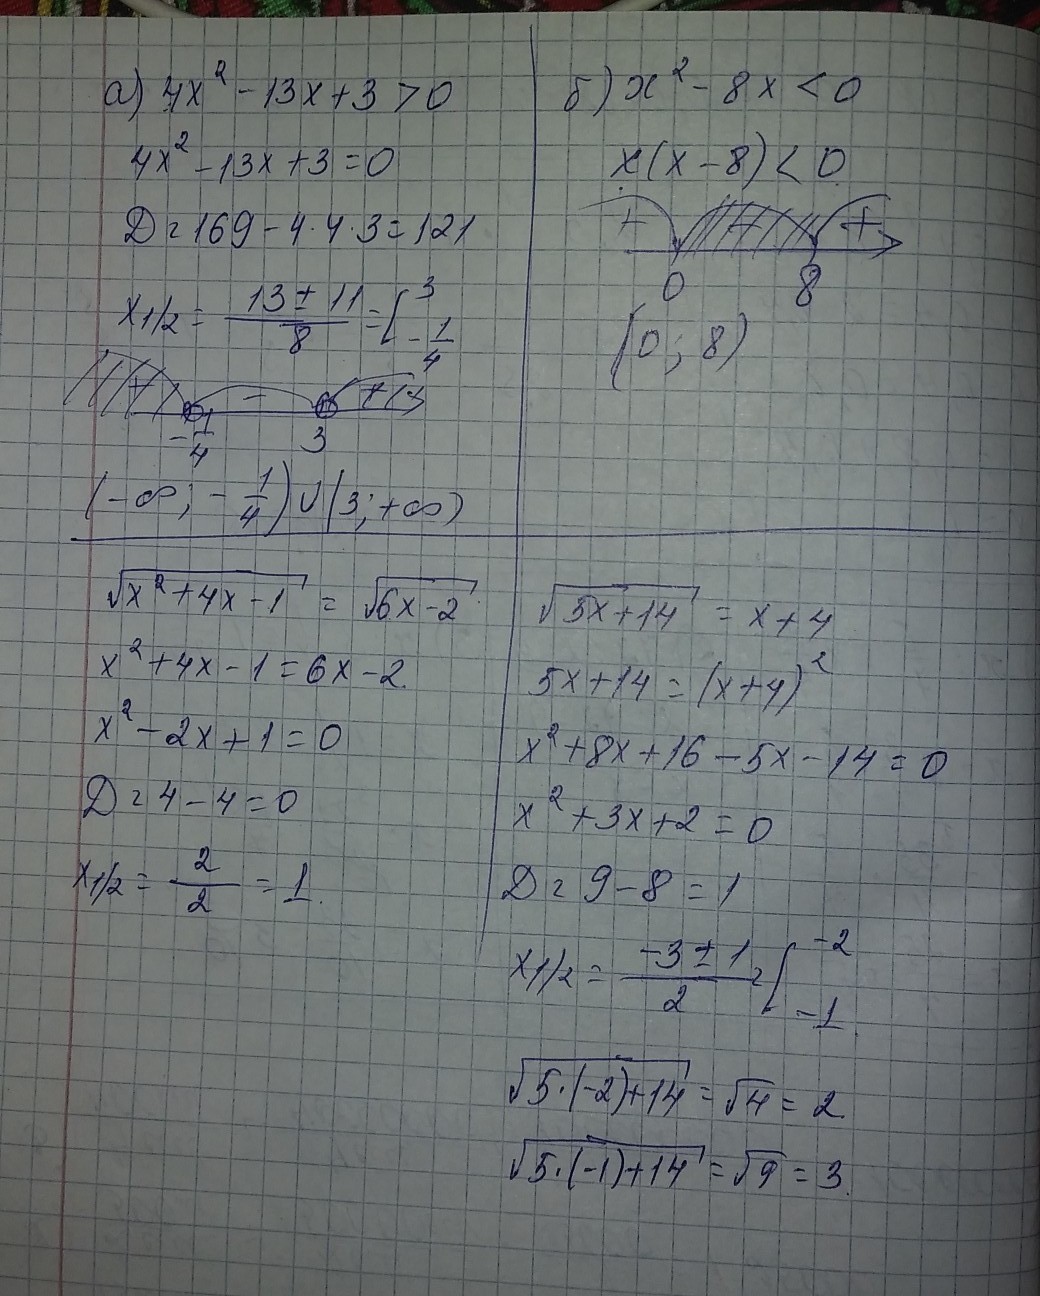 а) 4x² - 13x + 3 > 0
4x² - 13x + 3 = 0
D = 169 - 4·4·3 = 121
x₁/₂ = (13 ± 11)/8 = [3; -1/4
+ - +
-1/4 3
(-∞; -1/4) ∪ (3; +∞)
б) x² - 8x < 0
x(x - 8) < 0
+ - +
0 8
(0; 8)
√(x² + 4x - 1) = √(6x - 2)
x² + 4x - 1 = 6x - 2
x² - 2x + 1 = 0
D = 4 - 4 = 0
x₁/₂ = 2/2 = 1.
√(5x + 14) = x + 4
5x + 14 = (x + 4)²
x² + 8x + 16 - 5x - 14 = 0
x² + 3x + 2 = 0
D = 9 - 8 = 1
x₁/₂ = (-3 ± 1)/2 = [-2; -1
√(5·(-2) + 14) = √4 = 2
√(5·(-1) + 14) = √9 = 3